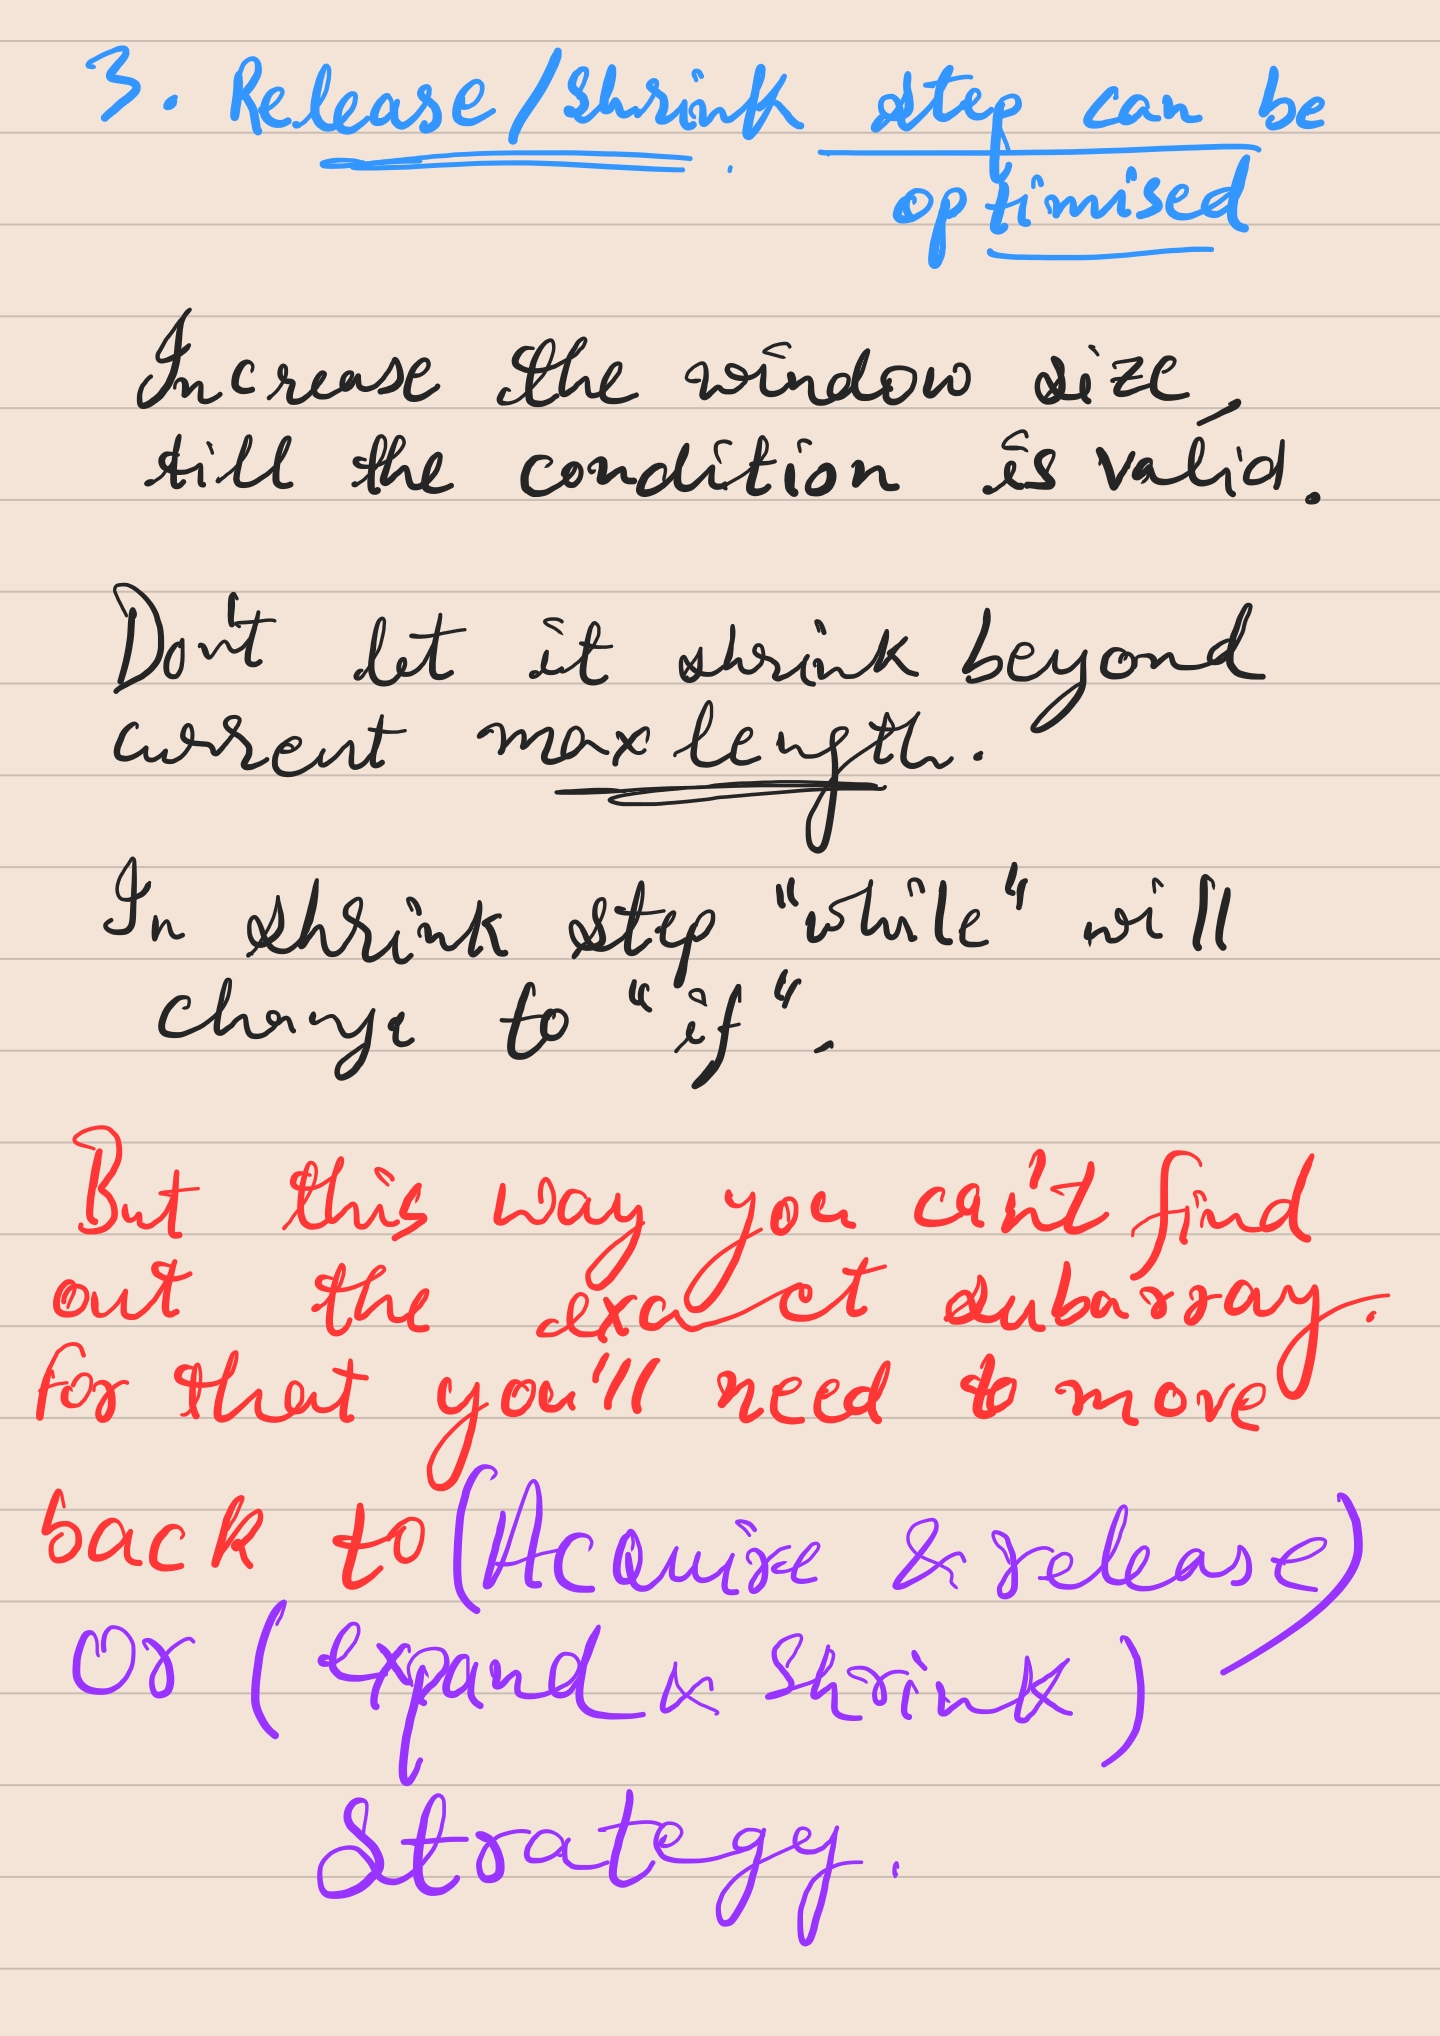 3. Release/shrink step can be
optimised
Increase the window size,
till the condition is valid.
Don't let it shrink beyond
current max length.
In shrink step "while" will
change to "if".
But this way you can't find
out the exact subarray.
For that you'll need to move
back to (Acquire & release)
Or (expand & shrink)
Strategy.